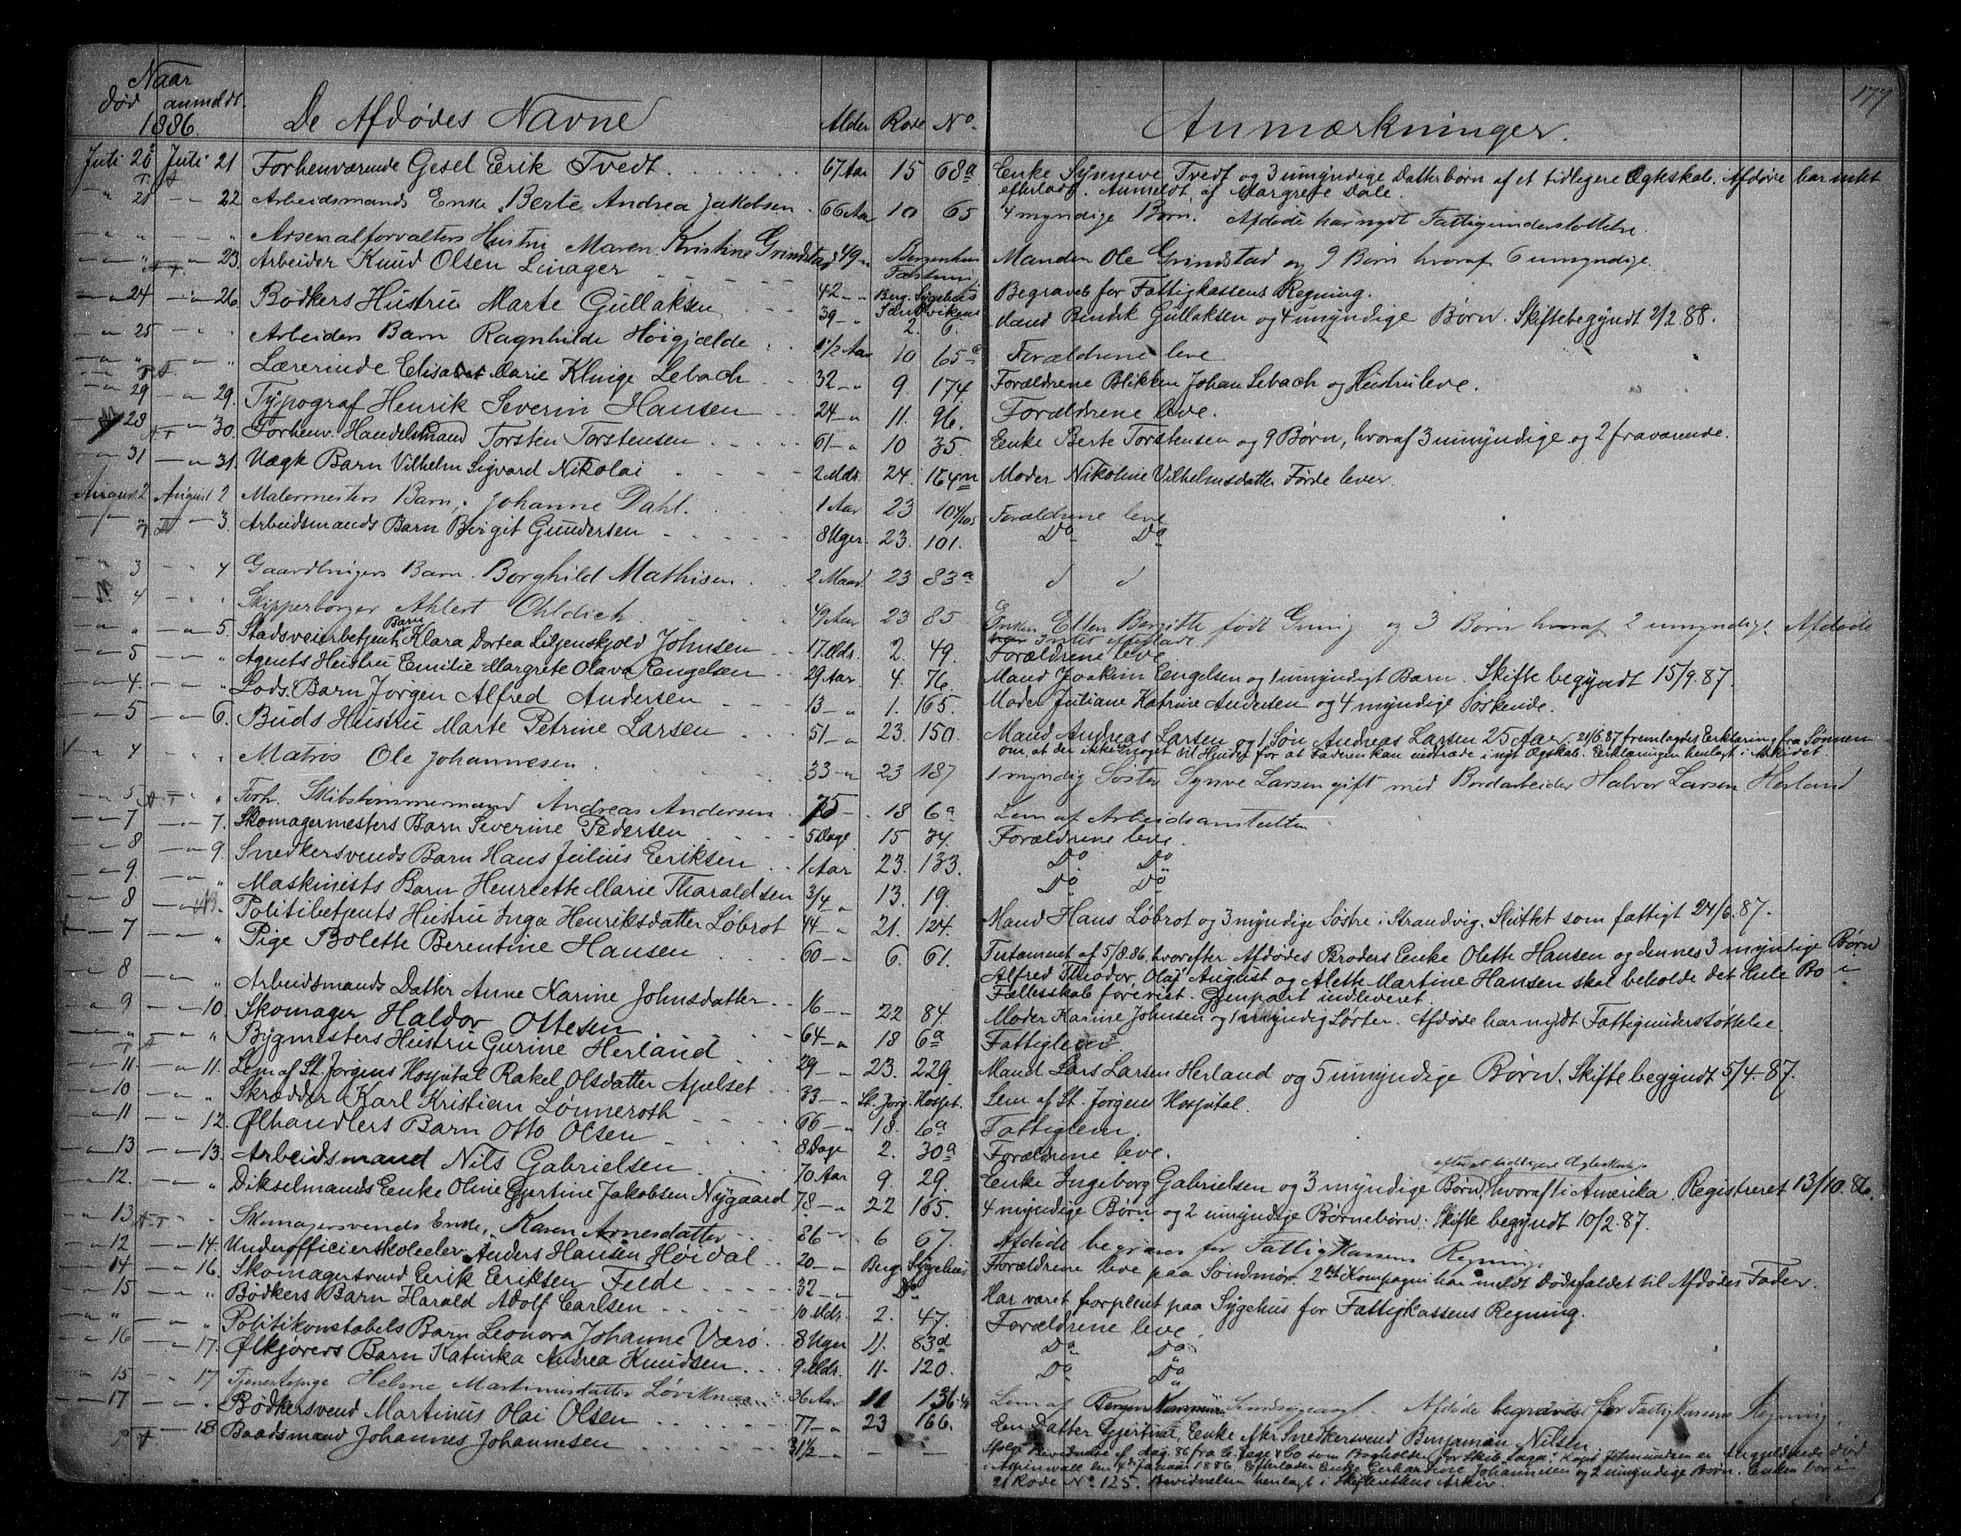 179
Naar
død anmeldt.
1886.
De Afdødes Navne Alder Rode No. Anmærkninger.
Juli 20 Juli 21 Forhenværende Gesel Erik Tvedt. 67 Aar 15 68a Enke Synneve Tvedt og 3 umyndige Datterbørn af et tidligere Ægteskab. Afdøde har intet
efterladt. Anmeldt af Margrete Dale.
" 21 - " 22 Arbeidsmands Enke, Berte Andrea Jakobsen 66 Aar 10 65 4 myndige Børn. Afdøde har nydt Fattigunderstøttelse.
" " - " " Arsenalforvalters Hustru Maren Kristine Grindstad 49 " Bergenhus Fæstning Manden Ole Grindstad og 9 Børn hvoraf 6 umyndige.
" " - " 23. Arbeider Knud Olsen Linager 42 - " Berg. Sygehus Begravet for Fattigkassens Regning.
- " 24 - " 26. Bødkers Hustru Marte Gullaksen 39 - " Sandviken 2. 6. Mand Bendik Gullaksen og 4 umyndige Børn. Skifte begyndt 2/2.88.
" 25 - " " Arbeiders Barn Ragnhilde Høigjælde 1 1/2 Aar 10 65c Forældrene leve
- " " - " " Lærerinde Elisabet Marie Kluge Lebach 32 - " 9. 174. Forældrene Blikken. Johan Lebach og Hustru leve.
- " 29 - " 29. Typograf Henrik Severin Hansen 24 - " 11. 96. Forældrene leve.
- " 28 - " 30. Forhenv. Handelsmand Torsten Torstensen 61 - " 10 35. Enke Berte Torstensen og 9 Børn, hvoraf 3 umyndige og 2 fraværende.
- " 31 - " 31. Uægt Barn Vilhelm Sigvard Nikolai 2 Mdr. 24. 164m Moder Nikoline Vilhelmsdatter Førde lever.
August 2 August 2 Malermesters Barn, Johanne Dahl. 1 Aar 23 104/105 Forældrene leve
- " 2 - 3. Arbeidsmands Barn Birgit Gundersen 8 Uger. 23. 101. Do Do
" 3 - " 4 Gaardbrugers Barn. Borghild Mathisen 2 Maad 23 83a
" 4 - " " Skipperborger Ahlert Ohldich 49 Aar 23 85. Enken Ellen Bergitte født Grung og 3 Børn hvoraf 2 umyndige. Afdøde
har Intet efterladt.
- " " - " 5. Stadsveierbetjents Barn Klara Dortea Liljenskjold Johnsen 17 Mdr. 2. 49. Forældrene leve.
- " 5 - " " Agents Hustru Emilie Margrete Olava Engelsen 29 Aar 4. 76. Mand Joakim Engelsen og 1 umyndigt Barn. Skifte begyndt 15/9.87.
- " 4. - " " Lods. Barn Jørgen Alfred Andersen 13 - " 1. 165. Moder Juliane Katrine Andersen og 4 myndige Søskende.
- " 5 - " 6. Buds Hustru Marte Petrine Larsen 51 - " 23. 150. Mand Andreas Larsen og 1 Søn Andreas Larsen 25 Aar. 21/6.87 fremlagdes Erklæring fra Sønnen
om, at der ikke er noget til Hinder for at Faderen kan indtræde i nyt Ægtskab. Erklæringen henlagt i Arkivet.
- " 4 - " " Matros Ole Johannesen 33 - " 23 187 1 myndig Søster Synve Larsen gift med Bordarbeider Halvor Larsen Herland
- " 5 - " " Forh. Skibstømmermand Andreas Andersen 75 - 18 6a Lem af Arbeidsanstalten.
- " 7 - " 7. Skomagermesters Barn Severine Pedersen 5 Dage 15 34. Forældrene leve.
- " 8 - " 9. Snedkersvends Barn Hans Julius Eriksen 1 Aar 23. 133. Do Do
- " 9. " Maskinists Barn Henriette Marie Tharaldsen 3/4 " 13. 19. Do Do
- " 8 - " 10. Politibetjents Hustru Inga Henriksdatter Løbrot 44 - " 21. 124. Mand Hans Løbrot og 3 myndige Søstre i Strandvig. Skiftet som fattigt 24/6.87.
- " 7 " Pige Bolette Berentine Hansen 60 - " 6. 61. Testament af 5/8.86, hvorefter Afdødes Broders Enke Olette Hansen og dennes 3 myndige Børn
Alfred Theodor, Olaf August og Alette Martine Hansen skal beholde det hele Bo i
Fællesskab forevist. Gjenpart indleveret.
- " 8 - " " Arbeidsmands Datter Anne Karine Johnsdatter 16 - - 22 84 Moder Karine Johnsen og 1 umyndig Søster. Afdøde har nydt Fattigunderstøttelse
" 9 - " 10. Skomager Haldor Ottesen 64 - " 18 6a Fattiglem
- " " - " " Bygmesters Hustru Gurine Herland 29 - " 23. 229. Mand Lars Larsen Herland og 5 umyndige Børn. Skifte begyndt 5/4.87.
- " 11 - " 11. Lem af St. Jørgens Hospital Rakel Olsdatter Apelset 33 - " St. Jørg. Hospt. Lem af St. Jørgens Hospital.
- " 10 - " " Skrædder Karl Kristian Lønneroth 66 - " 18. 6a Fattiglem.
- " 11 - " 12. Ølhandlers Barn Otto Olsen 8 Dage 2. 30a Forældrene leve.
- " 13 - " 13. Arbeidsmand Nils Gabrielsen 70 Aar 9. 29. Enke Ingeborg Gabrielsen og 3 myndige Børn, efter et tidligere Ægteskab, hvoraf 1 i Amerika. Registreret 13/10.86.
- " 12. - " " Dikselmands Enke Oline Gjertine Jakobsen Nygaard 78 - " 22 165. 4 myndige Børn og 2 umyndige Børnebørn. Skifte begyndt 10/2.87.
- " 13 - " " Skomagersvends Enke, Karen Arnesdatter 86 - " 6 67. Afdøde begraves for Fattigkassens Regning.
- " 12 - " 14. Underofficierskoleelev Anders Hansen Høidal 20 - " Berg. Sygehus Forældrene leve paa Søndmør. 2det Kompagni har meldt Dødsfaldet til Afdødes Fader.
- " 14 - " 16. Skomagersvend Erik Eriksen Felde 32 - " Do Har været forpleiet paa Sygehus for Fattigkassens Regning.
- " 15 - " " Bødkers Barn Harald Adolf Carlsen 10 Mdr. 2. 47. Forældrene leve.
- " " - " " Politikonstabels Barn Leonora Johanne Værø 8 Uger 11. 83d Do Do
- " 16 - " 17. Ølkjørers Barn Katinka Andrea Knudsen 9 Mdr. 11. 120. Do Do
- " 15 - " 17 Tjenestepige Helene Martinusdatter Løviknes 36 Aar 11 136 Lem af Bergens Kommunes Sindssygeasyl. Afdøde begravet for Fattigkassens Regning.
- " 17 - " " Bødkersvend Martinus Olai Olsen 77 - " 23 166. En Datter Gjertine, Enke efter Snedkersvend Benjamin Nilsen
" " - " 18 Baadsmand Johannes Johannesen 31 1/2 - " - - Ifølge Bevidnelse af dag. 86 fra C. Pege & Co som Bogholder for Skib Saga. Kapt. Jahnundsen er Angjældende død
i Aspinwall den 4de Januar 1886. Efterlader Enke Gerhardine Johannesen og 2 umyndige Børn. Enken bor i
21 Rode No. 125. Bevidnelsen henlagt i Skifterettens Arkiv.